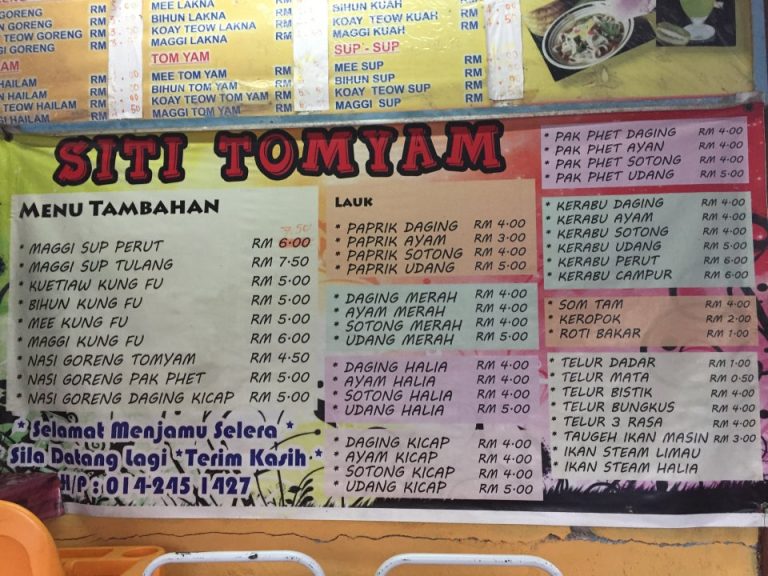 GORENG
GORENG
TEOW GORENG
GORENG
AM
HAILAM
N HAILAM
TEOW HAILAM
HAILAM
MEE LAKNA
BIHUN LAKNA
KOAY TEOW LAKNA
MAGGI LAKNA
TOM YAM
MEE TOM YAM RM
BIHUN TOM YAM RM
KOAY TEOW TOM YAM RM
MAGGI TOM YAM RM
BIHUN KUAH RM
KOAY TEOW KUAH RM
MAGGI KUAH RM
SUP - SUP
MEE SUP RM
BIHUN SUP RM
KOAY TEOW SUP RM
MAGGI SUP RM
SITI TOMYAM
MENU TAMBAHAN
7.50
* MAGGI SUP PERUT RM 6.00
* MAGGI SUP TULANG RM 7.50
* KUETIAW KUNG FU RM 5.00
* BIHUN KUNG FU RM 5.00
* MEE KUNG FU RM 5.00
* MAGGI KUNG FU RM 6.00
* NASI GORENG TOMYAM RM 4.50
* NASI GORENG PAK PHET RM 5.00
* NASI GORENG DAGING KICAP RM 5.00
* Selamat Menjamu Selera *
Sila Datang Lagi *Terim Kasih *
H/P : 014-245 1427
LAUK
* PAPRIK DAGING RM 4.00
* PAPRIK AYAM RM 3.00
* PAPRIK SOTONG RM 4.00
* PAPRIK UDANG RM 5.00
* DAGING MERAH RM 4.00
* AYAM MERAH RM 4.00
* SOTONG MERAH RM 4.00
* UDANG MERAH RM 5.00
* DAGING HALIA RM 4.00
* AYAM HALIA RM 4.00
* SOTONG HALIA RM 4.00
* UDANG HALIA RM 5.00
* DAGING KICAP RM 4.00
* AYAM KICAP RM 4.00
* SOTONG KICAP RM 4.00
* UDANG KICAP RM 5.00
* PAK PHET DAGING RM 4.00
* PAK PHET AYAN RM 4.00
* PAK PHET SOTONG RM 4.00
* PAK PHET UDANG RM 5.00
* KERABU DAGING RM 4.00
* KERABU AYAM RM 4.00
* KERABU SOTONG RM 4.00
* KERABU UDANG RM 5.00
* KERABU PERUT RM 6.00
* KERABU CAMPUR RM 6.00
* SOM TAM RM 4.00
* KEROPOK RM 2.00
* ROTI BAKAR RM 1.00
* TELUR DADAR RM 1.00
* TELUR MATA RM 0.50
* TELUR BISTIK RM 4.00
* TELUR BUNGKUS RM 4.00
* TELUR 3 RASA RM 4.00
* TAUGEH IKAN MASIN RM 3.00
* IKAN STEAM LIMAU
* IKAN STEAM HALIA